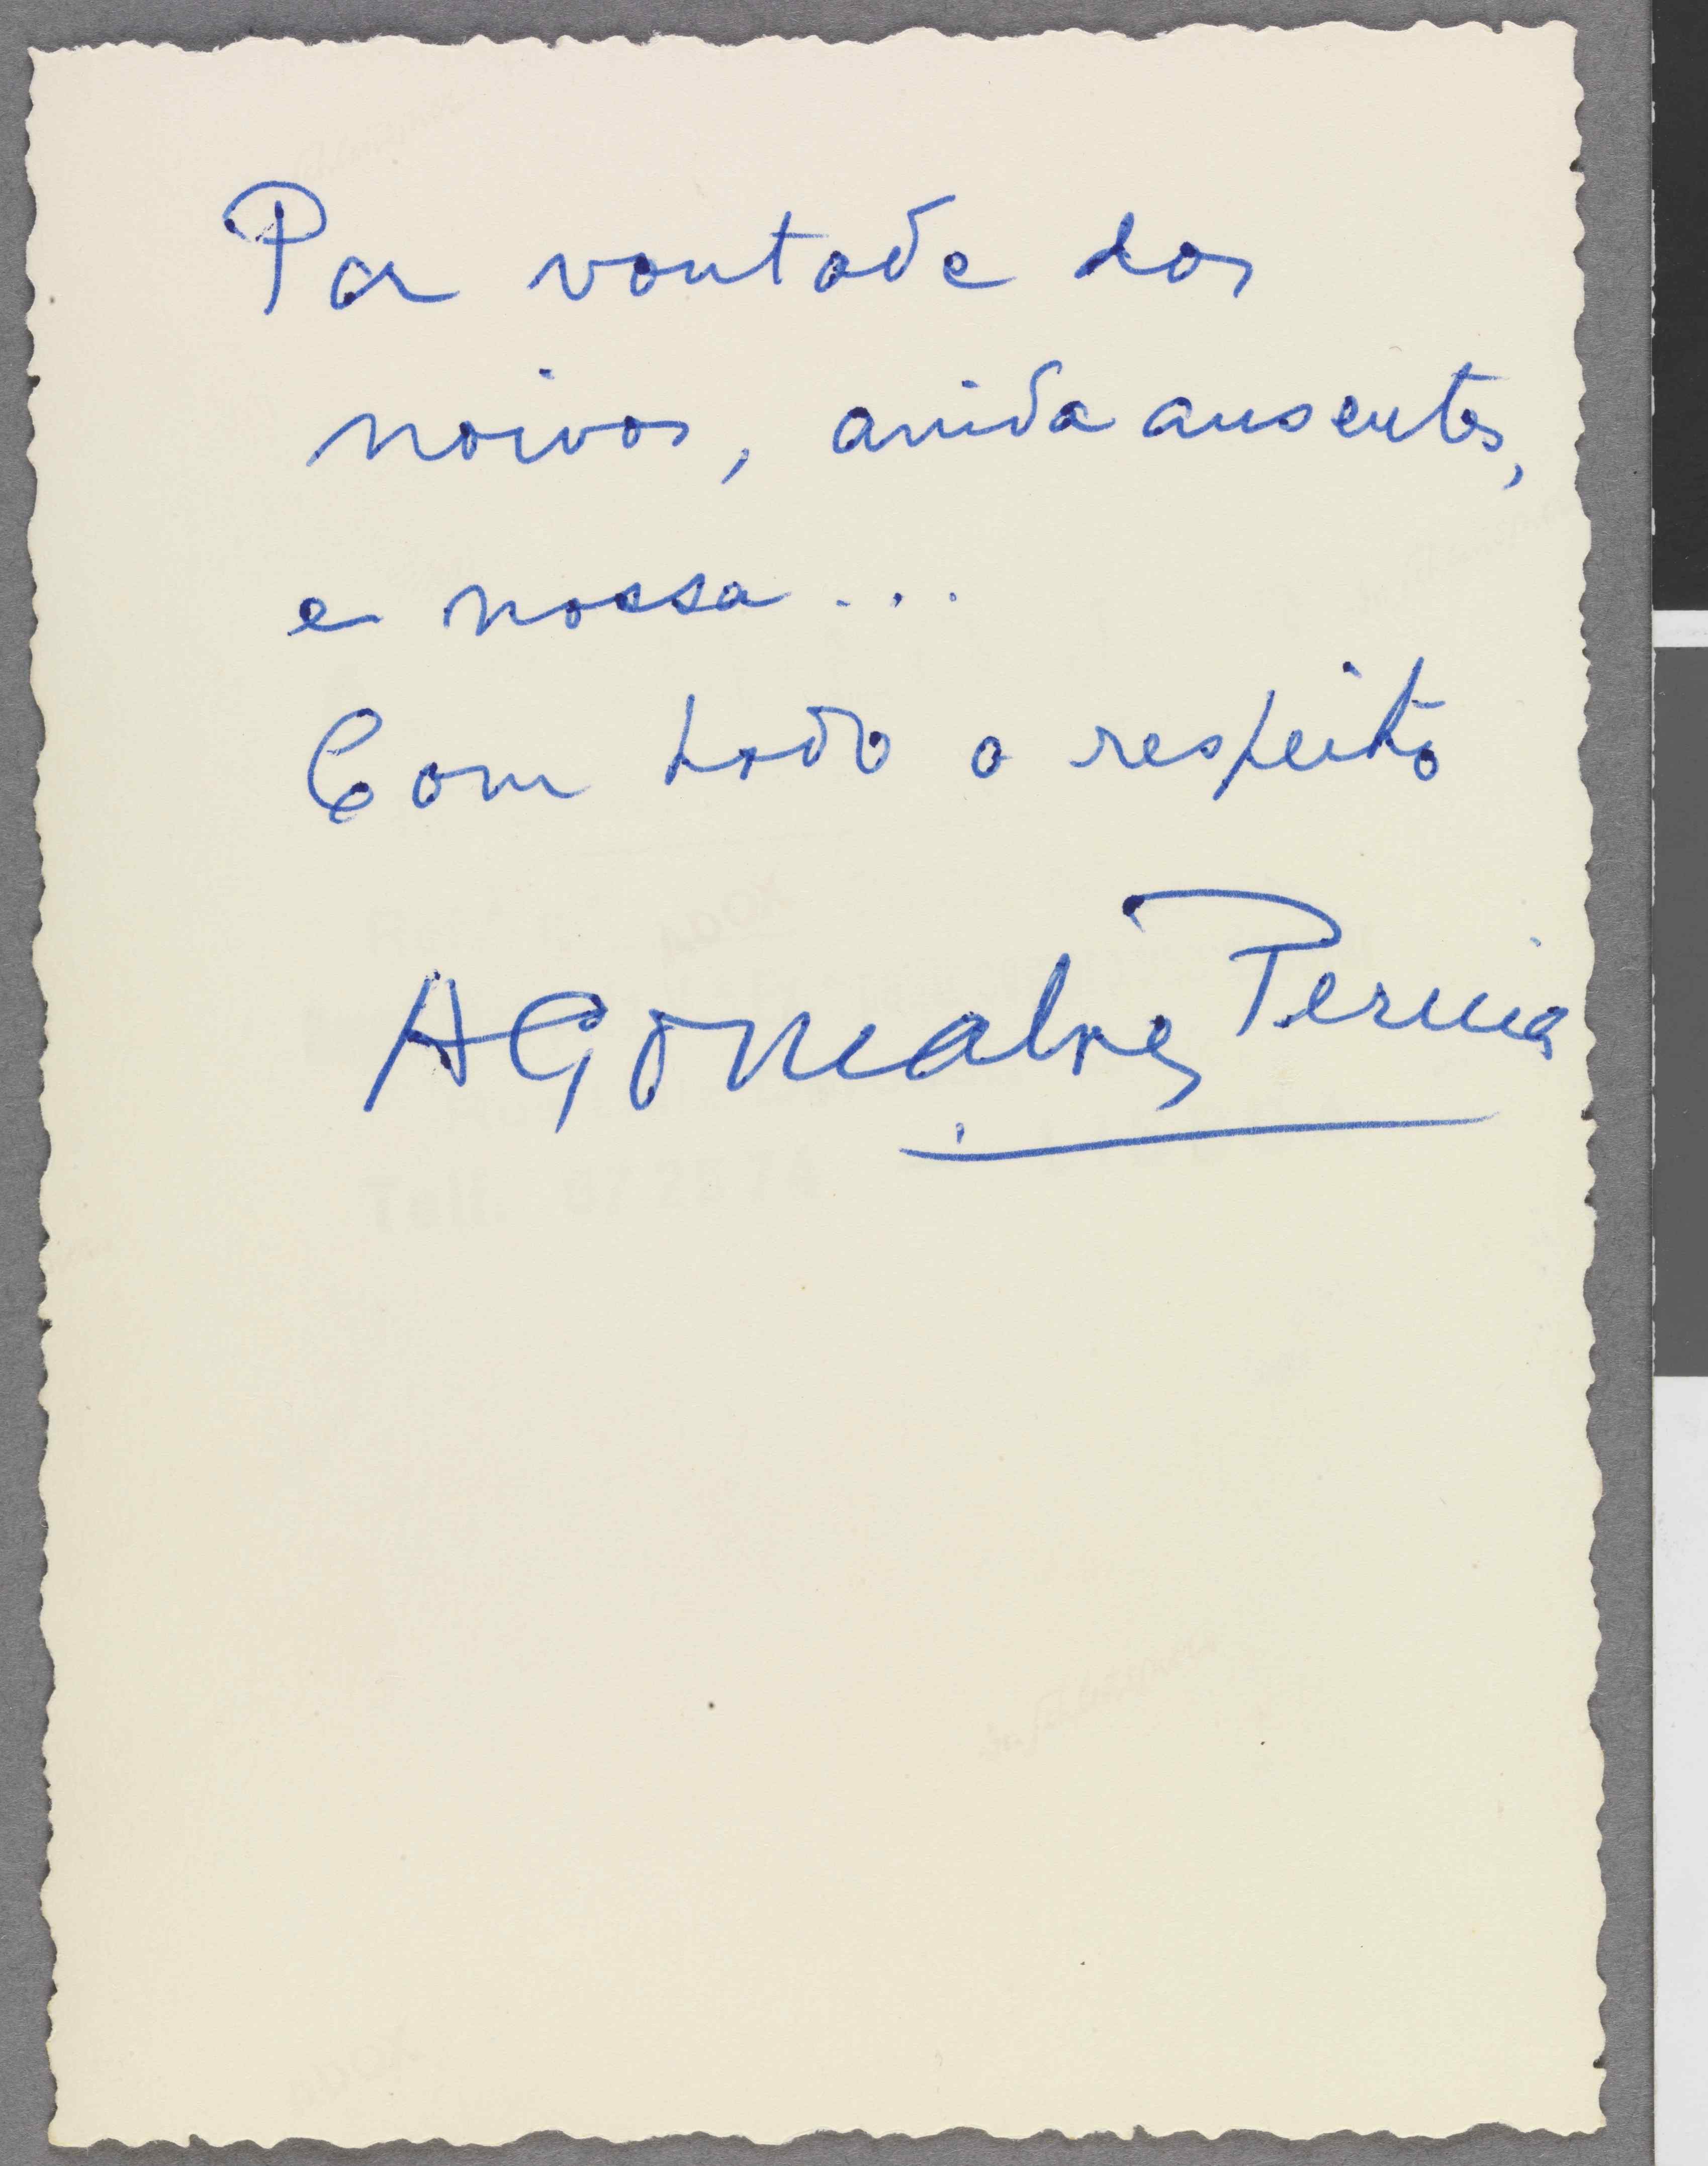 Por vontade dos
noivos, ainda ausentes,
e nossa...
Com todo o respeito
A Gonçalves Pereira